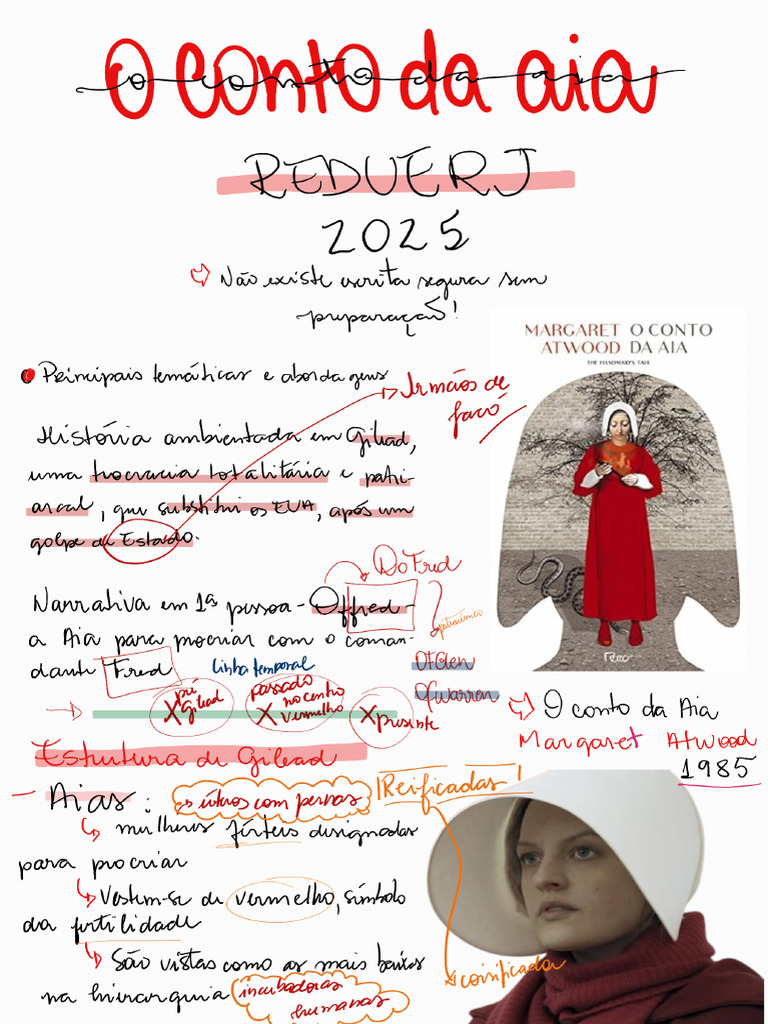 O conto da aia
o conto da aia
REDUERJ
2025
Não existe escrita segura sem
preparação!
MARGARET O CONTO
ATWOOD DA AIA
THE HANDMAID'S TALE
Rocco
Principais temáticas e abordagens
Irmãos de
História ambientada em Gilead,
uma teocracia totalitária e patri-
arcal, que substitui os EUA, após um
golpe de Estado.
DoFred
Narrativa em 1ª pessoa - Offred -
patronímico
a Aia para procriar com o coman-
dante Fred
linha temporal
OfGlen
Ofwarren
pré
Gilead
passado
no centro
vermelho
presente
O conto da Aia
Margaret Atwood
1985
Estrutura de Gilead
Aias:
úteros com pernas
Reificadas!
mulheres férteis designadas
para procriar
Vestem-se de vermelho, símbolo
da fertilidade
São vistas como as mais baixas
na hierarquia
incubadoras
humanas
coisificada